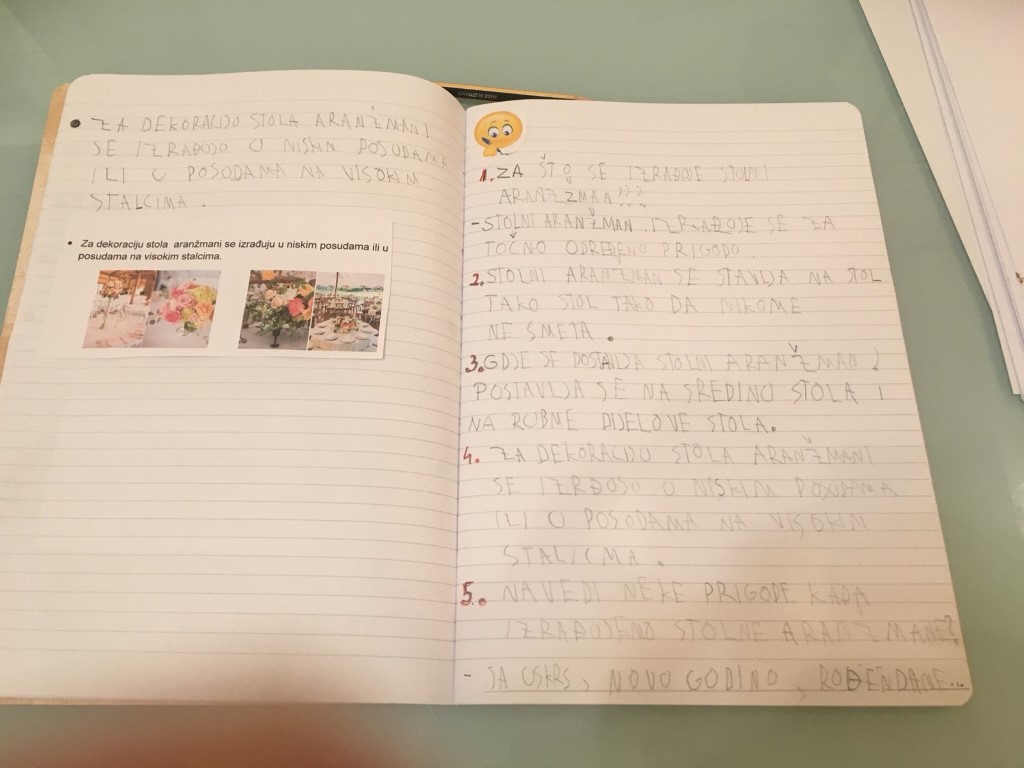 ZA DEKORACIJO STOLA ARANŽMANI
SE IZRAĐOJO O NISKIM POSUDAMA
ILI U POSODAMA NA VISOKIM
STALCIMA.
• Za dekoraciju stola aranžmani se izrađuju u niskim posudama ili u
posudama na visokim stalcima.
1. ZA ŠTO SE IZRAĐUJE STOLNI
ARANŽMAN???
-STOLNI ARANŽMAN IZRAĐOJE SE ZA
TOČNO ODREĐENO PRIGODO.
2. STOLNI ARANŽMAN SE STAVLJA NA STOL
TAKO STOL TAKO DA NIKOME
NE SMETA.
3. GDJE SE POSTAVLJA STOLNI ARANŽMAN?
POSTAVLJA SE NA SREDINO STOLA I
NA RUBNE DIJELOVE STOLA.
4. ZA DEKORACIJU STOLA ARANŽMANI
SE IZRĐOJO O NISKIM POSUDAMA
ILI U POSODAMA NA VISOKIM
STALICMA.
5. NAVEDI NEKE PRIGODE KADA
IZRAĐOJEMO STOLNE ARANŽMANE?
- SA USKRS, NOVO GODINO, ROĐENDANE...